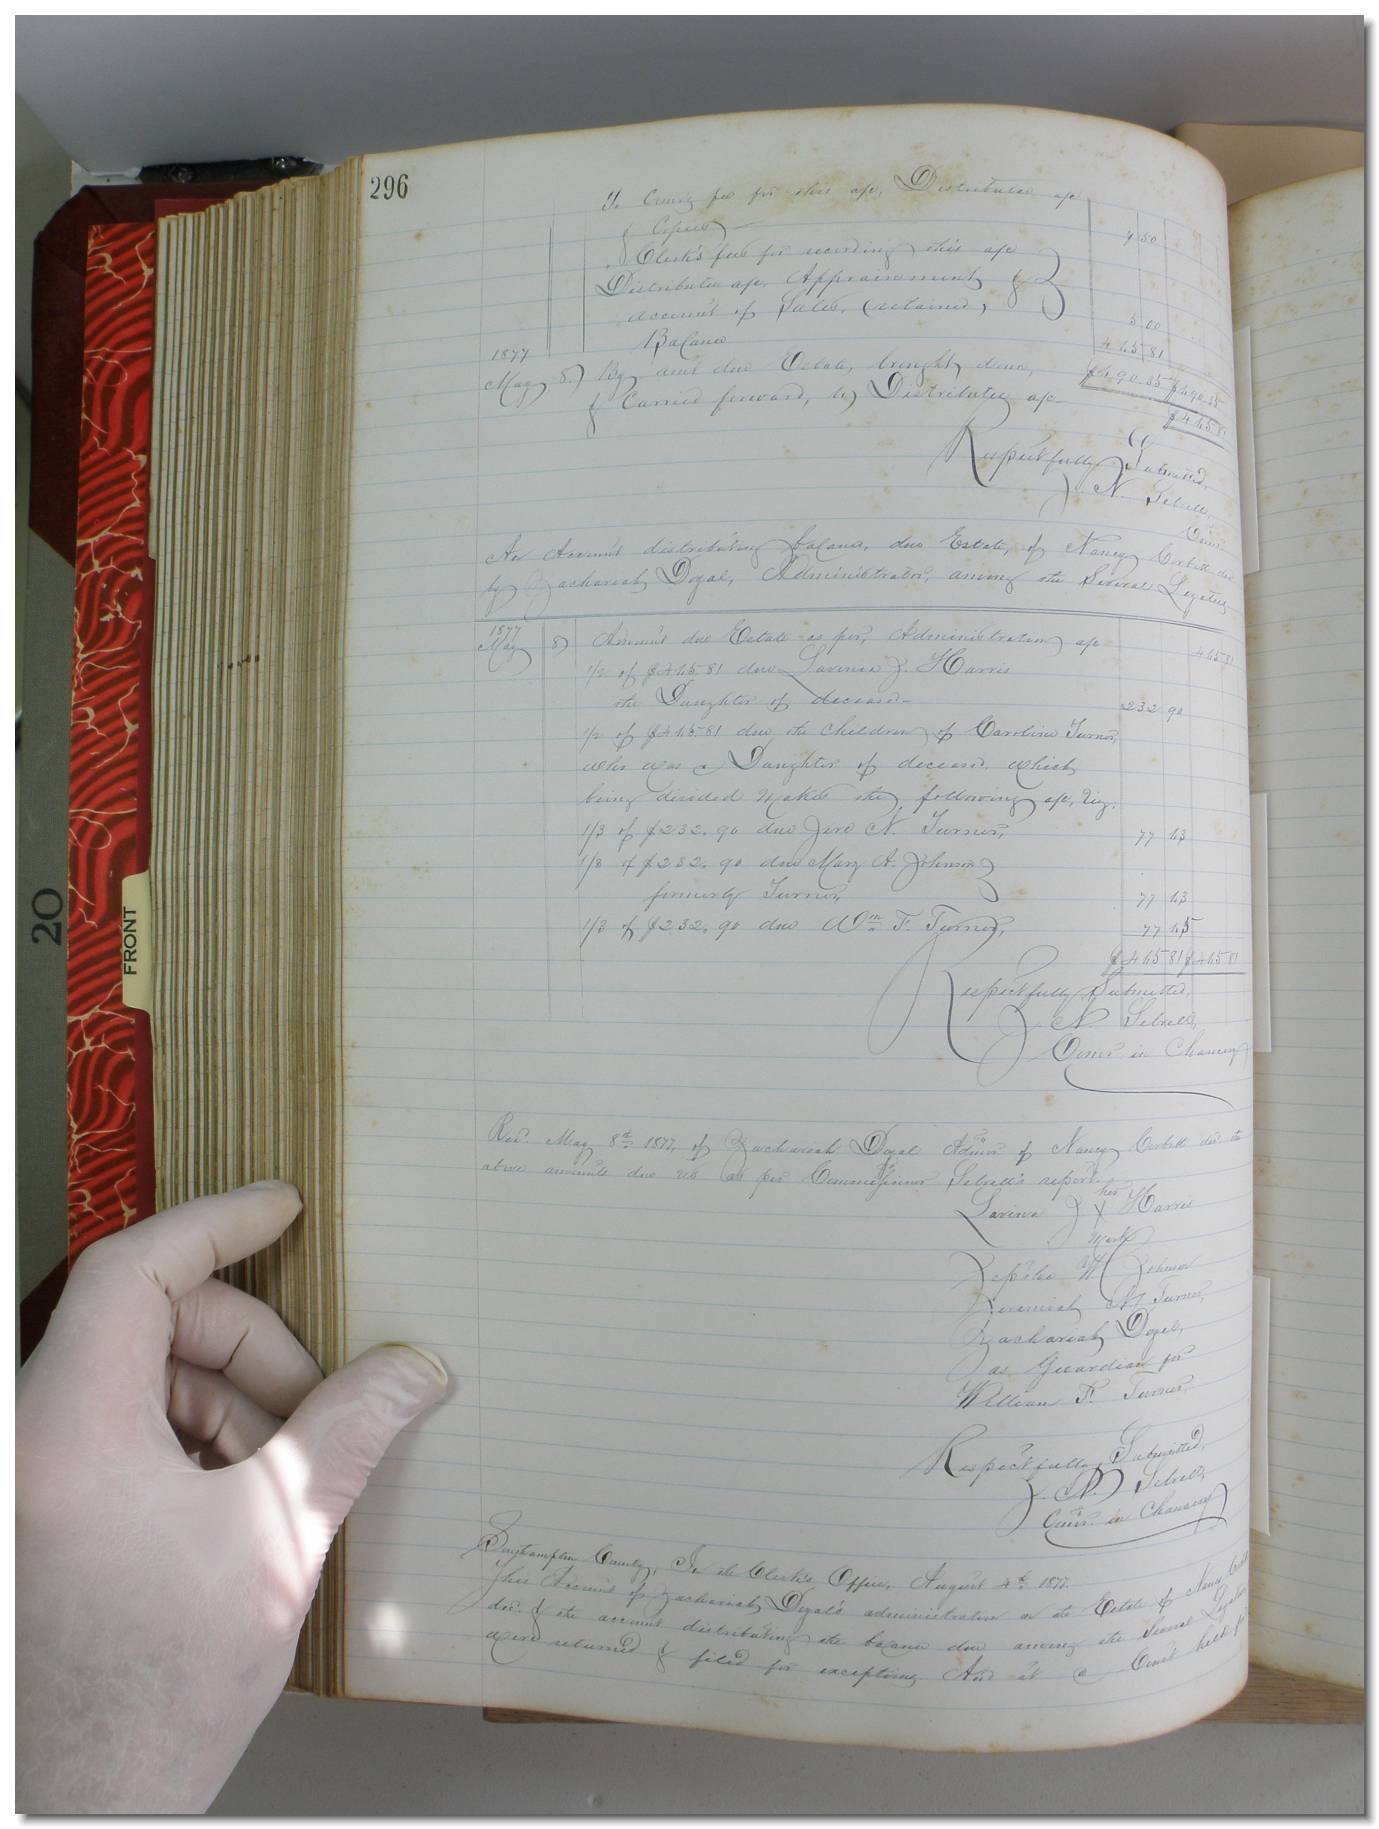 296
To Comrs fee for this a/c, Distributee a/c
& Copies 4 50
Clerk's fees for recording this a/c
Distributee a/c, Appraisement &
account of Sales, (retained) 5 00
Balance 465 81
1877
May 8) By amt due Estate, brought down, $490.35 $490.35
& Carried forward, to Distributee a/c $465.81
Respectfully Submitted,
J. N. Sebrell,
Comr
An Account distributing balance, due Estate, of Nancy Corbett dec
by Zachariah Dogal, Administrator, among the Several Legatees
1877
May 8) Amount due Estate as per, Administration a/c 465 81
1/2 of $465 81 due Lavinia J. Harris
the Daughter of deceased 232 90
1/2 of $465 81 due the children of Caroline Turner,
who was a Daughter of deceased. which
being divided makes the following a/c, viz:
1/3 of $232. 90 due Jere N. Turner, 77 63
1/3 of $232. 90 due Mary A. Johnson
formerly Turner, 77 63
1/3 of $232. 90 due Wm F. Turner, 77 65
$465 81 $465 81
Respectfully Submitted,
J. N. Sebrell,
Comr in Chancery
Rec'd May 8th 1877, of Zachariah Dogal Admr of Nancy Corbett dec the
above amounts due us as per Commissioner Sebrell's report.
Lavinia J her X Harris
mark
W. Johnson
Jeremiah N. Turner,
Zachariah Dogal,
as Guardian for
William F. Turner
Respectfully Submitted,
J. N. Sebrell,
Comr. in Chancery
Southampton County, In the Clerk's Office, August 4th 1877.
This Account of Zachariah Dogal's administration on the Estate of Nancy Corbett
dec. & the account distributing the balance due among the Several Legatees
were returned & filed for exceptions, And at a Court held for